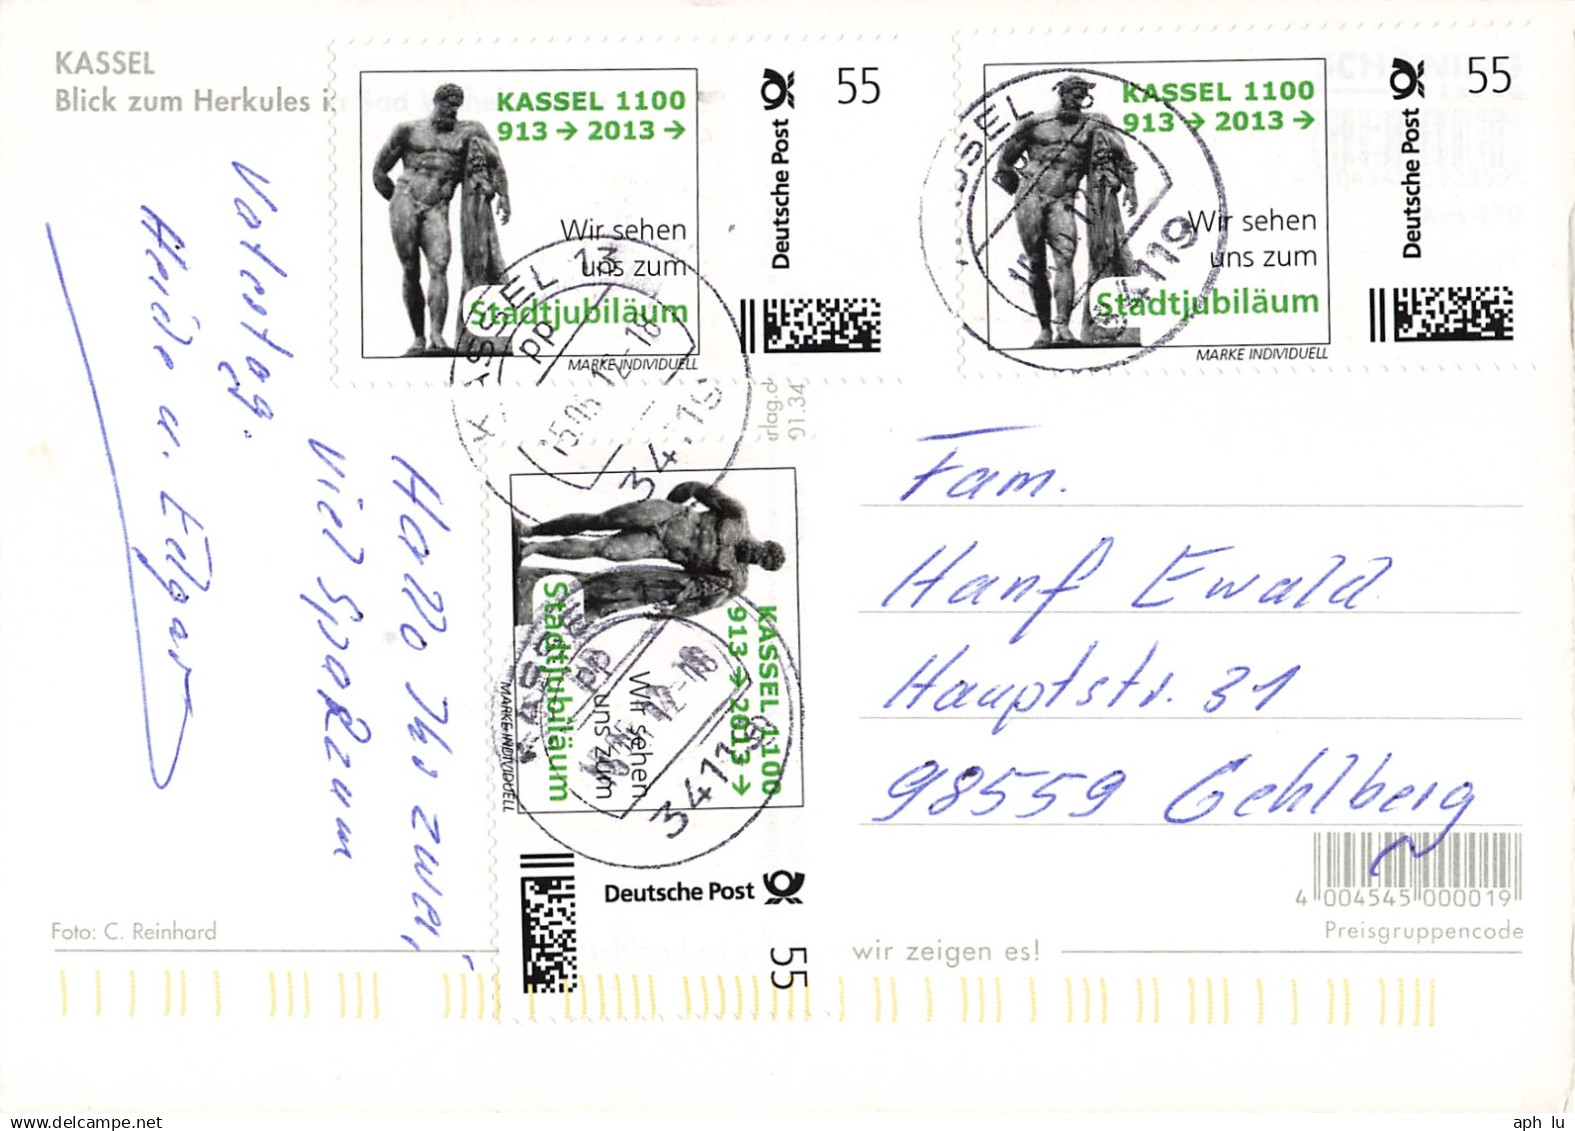 KASSEL
Blick zum Herkules i
KASSEL 1100
913 → 2013 →
Wir sehen
uns zum
Stadtjubiläum
MARKE INDIVIDUELL
Deutsche Post
55
KASSEL 1100
913 → 2013 →
Wir sehen
uns zum
Stadtjubiläum
MARKE INDIVIDUELL
Deutsche Post
55
KASSEL 1100
913 → 2013 →
Wir sehen
uns zum
Stadtjubiläum
MARKE INDIVIDUELL
Deutsche Post
55
KASSEL 13
pp
34119
pp
34119
pp
34119
erlag.d
91.34
Hallo Ihr zwei,
Viel Spaß zum
Vatertag.
Heide u. Edgar
Fam.
Hanf Ewald
Hauptstr. 31
98559 Gehlberg
4 004545 000019
Preisgruppencode
Foto: C. Reinhard
wir zeigen es!
aph lu